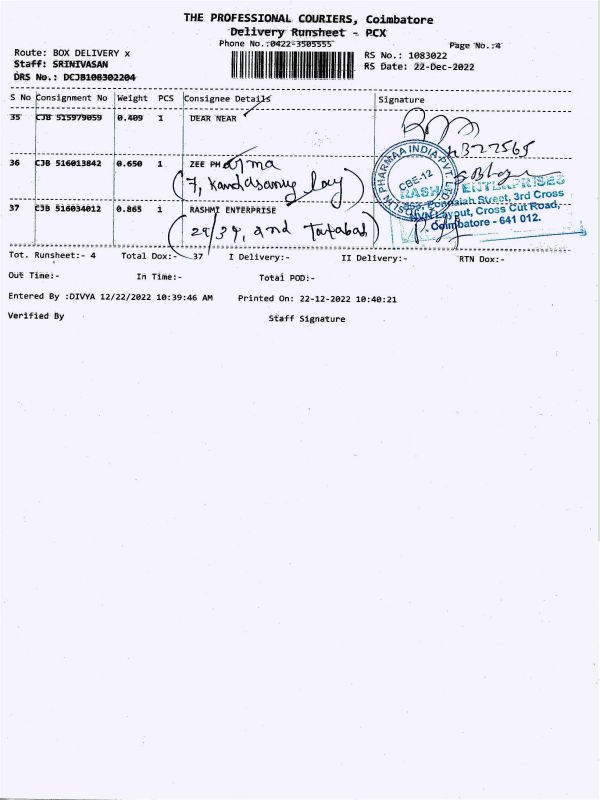 THE PROFESSIONAL COURIERS, Coimbatore
Delivery Runsheet - PCX
Phone No.:0422-3505555
Page No.:4
Route: BOX DELIVERY x
Staff: SRINIVASAN
DRS No.: DCJB108302204
RS No.: 1083022
RS Date: 22-Dec-2022
S No Consignment No Weight PCS Consignee Details Signature
35 CJB 515979059 0.409 1 DEAR NEAR
36 CJB 516013842 0.650 1 ZEE PHarma
(7, Kandasamy lay)
37 CJB 516034012 0.865 1 RASHMI ENTERPRISE
(29/34, 2nd Tatabad)
PHARMAA INDIA PVT.
CBE-12
ENTERPRISES
Street, 3rd Cross
Layout, Cross Cut Road,
Coimbatore - 641 012.
Tot. Runsheet:- 4 Total Dox:- 37 I Delivery:- II Delivery:- RTN Dox:-
Out Time:- In Time:- Total POD:-
Entered By :DIVYA 12/22/2022 10:39:46 AM Printed On: 22-12-2022 10:40:21
Verified By Staff Signature